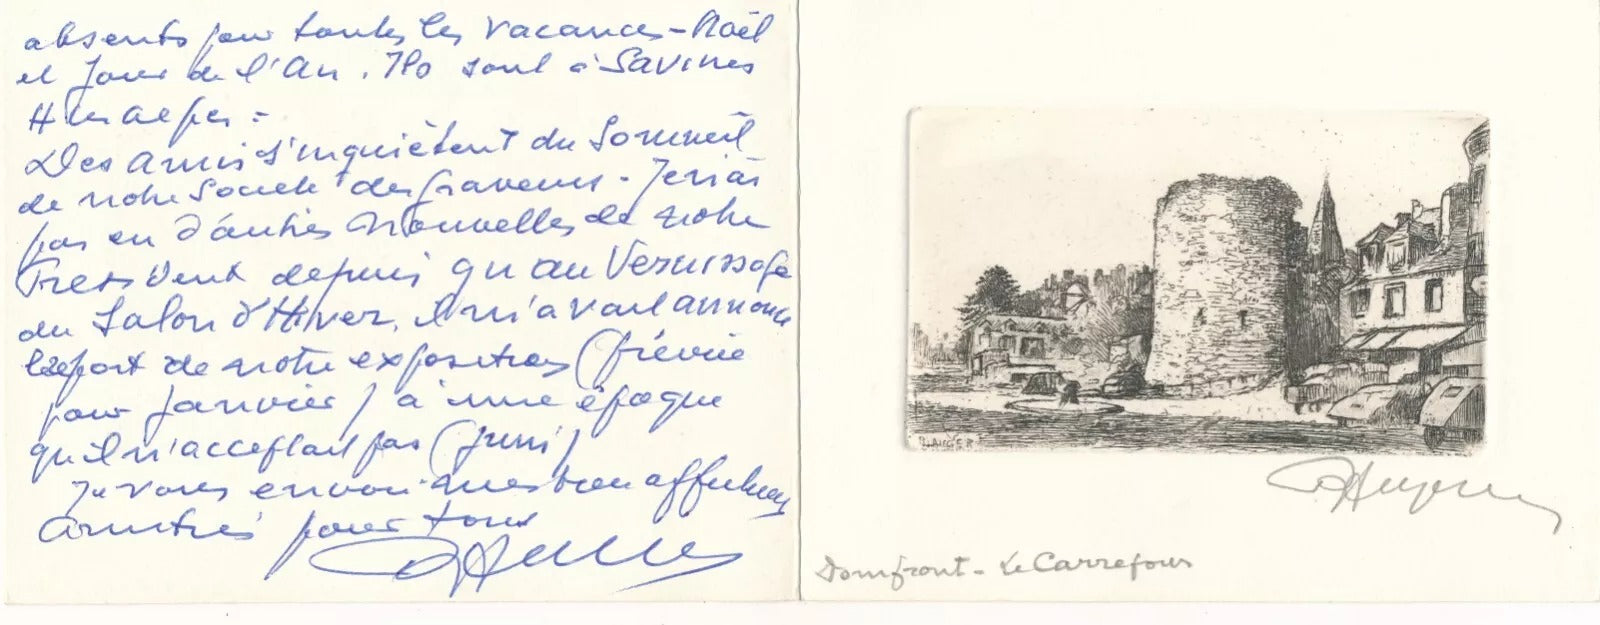 absents pour toutes les vacances - Noël
et Jour de l'An. Ils sont à Savines
Htes Alpes =
Des amis s'inquiètent du Sommeil
de notre Société des graveurs - Je n'ai
pas eu d'autres nouvelles de notre
President depuis qu'au Vernissage
du Salon d'Hiver, il m'avait annoncé
le report de notre exposition (prévue
pour Janvier) à une époque
qu'il n'acceptait pas (Juin)
Je vous envoie mes bien affectueuses
amitiés pour tous
B. AUGER
Domfront - Le Carrefour